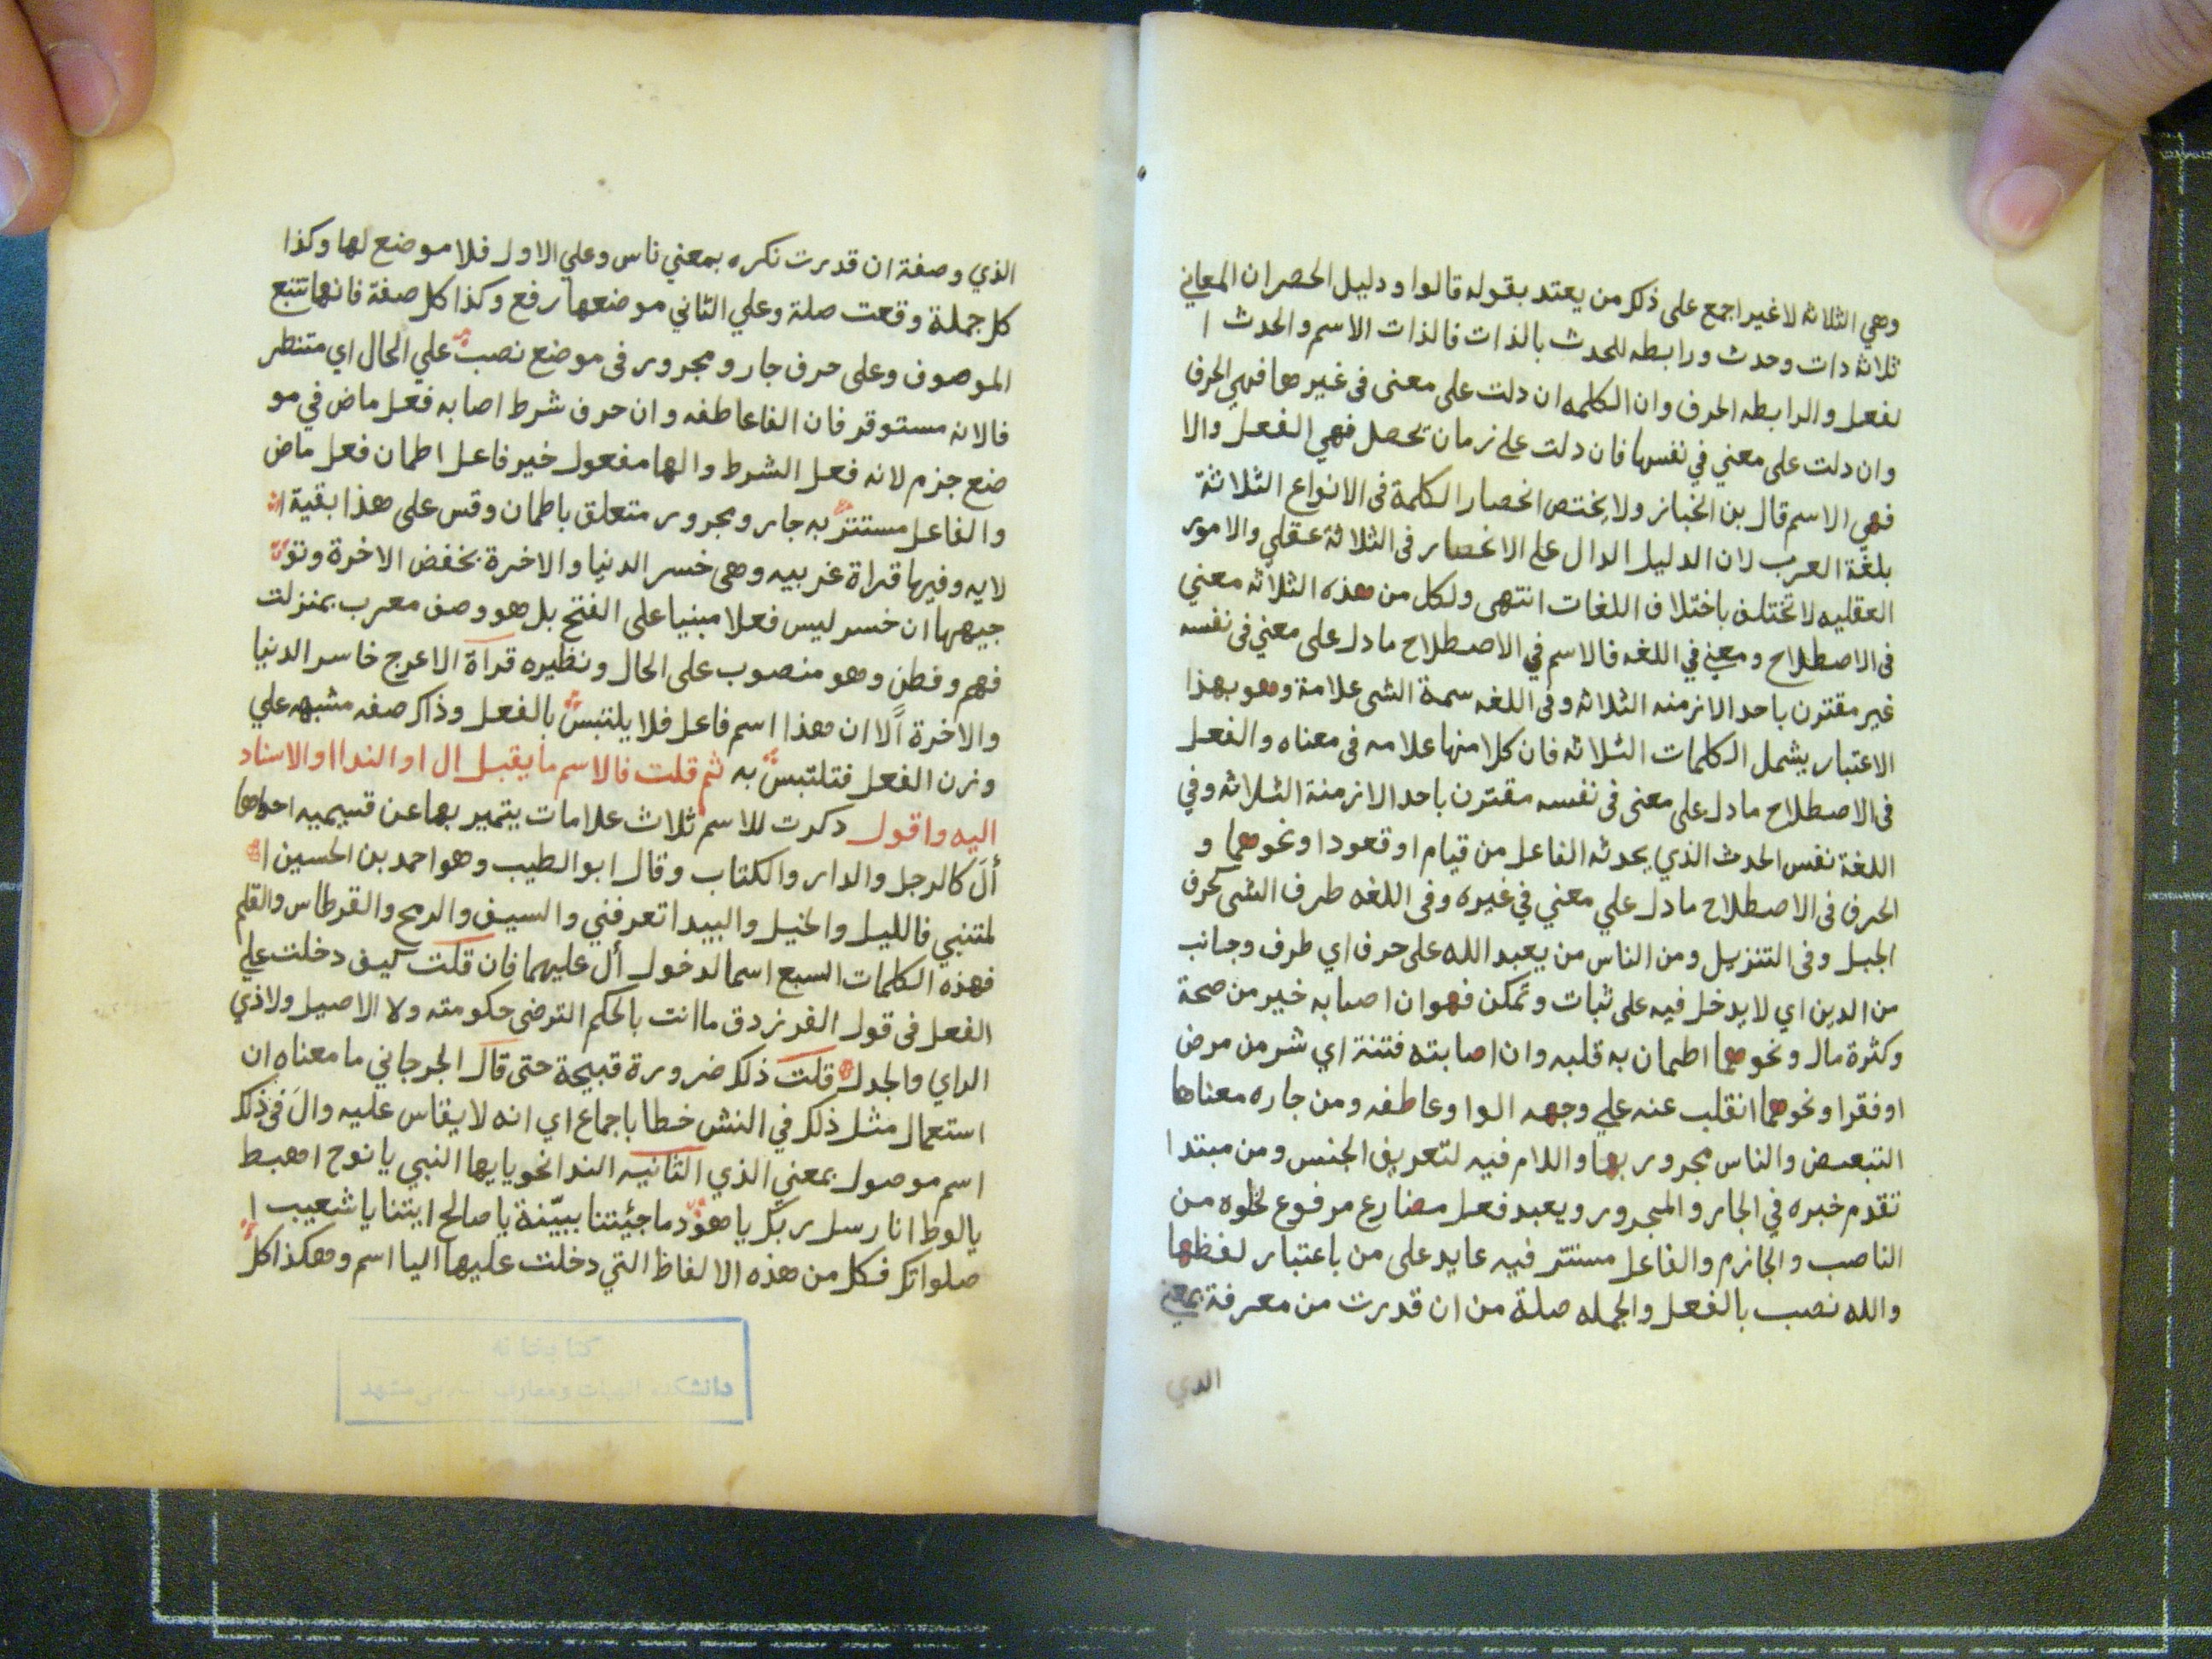 وهي الثلاثه لا غير اجمع على ذلك من يعتد بقوله قالوا ودليل الحصر ان المعاني
ثلاثة ذات وحدث ورابطه للحدث بالذات فالذات الاسم والحدث ا
لفعل والرابطه الحرف وان الكلمه ان دلت على معنى فى غيرها فهي الحرف
وان دلت على معني في نفسها فان دلت على زمان تحصل فهي الفعل والا
فهي الاسم قال بن الخباز ولا يختص انحصار الكلمة فى الانواع الثلاثة
بلغة العرب لان الدليل الدال على الانحصار فى الثلاثة عقلي والامور
العقليه لا تختلف باختلاف اللغات انتهى ولكل من هذه الثلاثه معني
فى الاصطلاح ومعني في اللغه فالاسم في الاصطلاح ما دل على معني فى نفسه
غير مقترن باحد الازمنه الثلاثه وفى اللغه سمة الشى علامة وهو بهذا
الاعتبار يشمل الكلمات الثلاثه فان كلا منها علامه فى معناه والفعل
فى الاصطلاح ما دل على معنى فى نفسه مقترن باحد الازمنة الثلاثه وفي
اللغة نفس الحدث الذي يحدثه الفاعل من قيام او قعود او نحوهما و
الحرف فى الاصطلاح ما دل علي معني في غيره وفى اللغه طرف الشى كحرف
الجبل وفى التنزيل ومن الناس من يعبد الله على حرف اي طرف وجانب
من الدين اي لا يدخل فيه على ثبات وتمكن فهو ان اصابه خير من صحة
وكثرة مال ونحوهما اطمان به قلبه وان اصابته فتنة اي شر من مرض
او فقر او نحوهما انقلب عنه علي وجهه الواو عاطفه ومن جاره معناها
التبعيض والناس مجرور بها واللام فيه لتعريف الجنس ومن مبتدا
تقدم خبره في الجار والمجرور ويعبد فعل مضارع مرفوع لخلوه من
الناصب والجازم والفاعل مستتر فيه عايد على من باعتبار لفظها
والله نصب بالفعل والجمله صلة من ان قدرت من معرفة بمعني
الذي
الذي وصفة ان قدرت نكره بمعني ناس وعلي الاول فلا موضع لها وكذا
كل جملة وقعت صلة وعلي الثاني موضعها رفع وكذا كل صفة فانها تتبع
الموصوف وعلى حرف جار ومجرور فى موضع نصب علي الحال اي متنظر
فالانه مستوقر فان الفا عاطفه وان حرف شرط اصابه فعل ماض في مو
ضع جزم لانه فعل الشرط والها مفعول خير فاعل اطمان فعل ماض
والفاعل مستتر به جار ومجرور متعلق باطمان وقس على هذا بقية ا
لايه وفيها قراة غريبه وهى خسر الدنيا والاخرة بخفض الاخرة وتو
جيهها ان خسر ليس فعلا مبنيا على الفتح بل هو وصف معرب بمنزلت
فهم وفطن وهو منصوب على الحال ونظيره قرآة الاعرج خاسر الدنيا
والاخرة الا ان هذا اسم فاعل فلا يلتبس بالفعل وذاك صفه مشبهه علي
وزن الفعل فتلتبس به ثم قلت فالاسم ما يقبل ال او الندا او الاسناد
اليه واقول ذكرت للاسم ثلاث علامات يتميز بها عن قسيميه احداها
أل كالرجل والدار والكتاب وقال ابو الطيب وهو احمد بن الحسين ا
لمتنبي فالليل والخيل والبيدا تعرفني والسيف والرمح والقرطاس والقلم
فهذه الكلمات السبع اسما لدخول أل عليهما فان قلت كيف دخلت علي
الفعل فى قول الفرزدق ما انت بالحكم الترضى حكومته ولا الاصيل ولا ذي
الراي والجدل قلت ذلك ضرورة قبيحة حتى قال الجرجاني ما معناه ان
استعمال مثل ذلك في النثر خطا باجماع اي انه لا يقاس عليه وال فى ذلك
اسم موصول بمعني الذي الثانيه الندا نحو يايها النبي يا نوح اهبط
يالوط انا رسل ربك يا هود ما جئيتنا ببيّنة يا صالح ايتنا يا شعيب ا
صلواتك فكل من هذه الالفاظ التي دخلت عليها اليا اسم وهكذا كل
كتابخانه
دانشكده الهيات ومعارف اسلامى مشهد